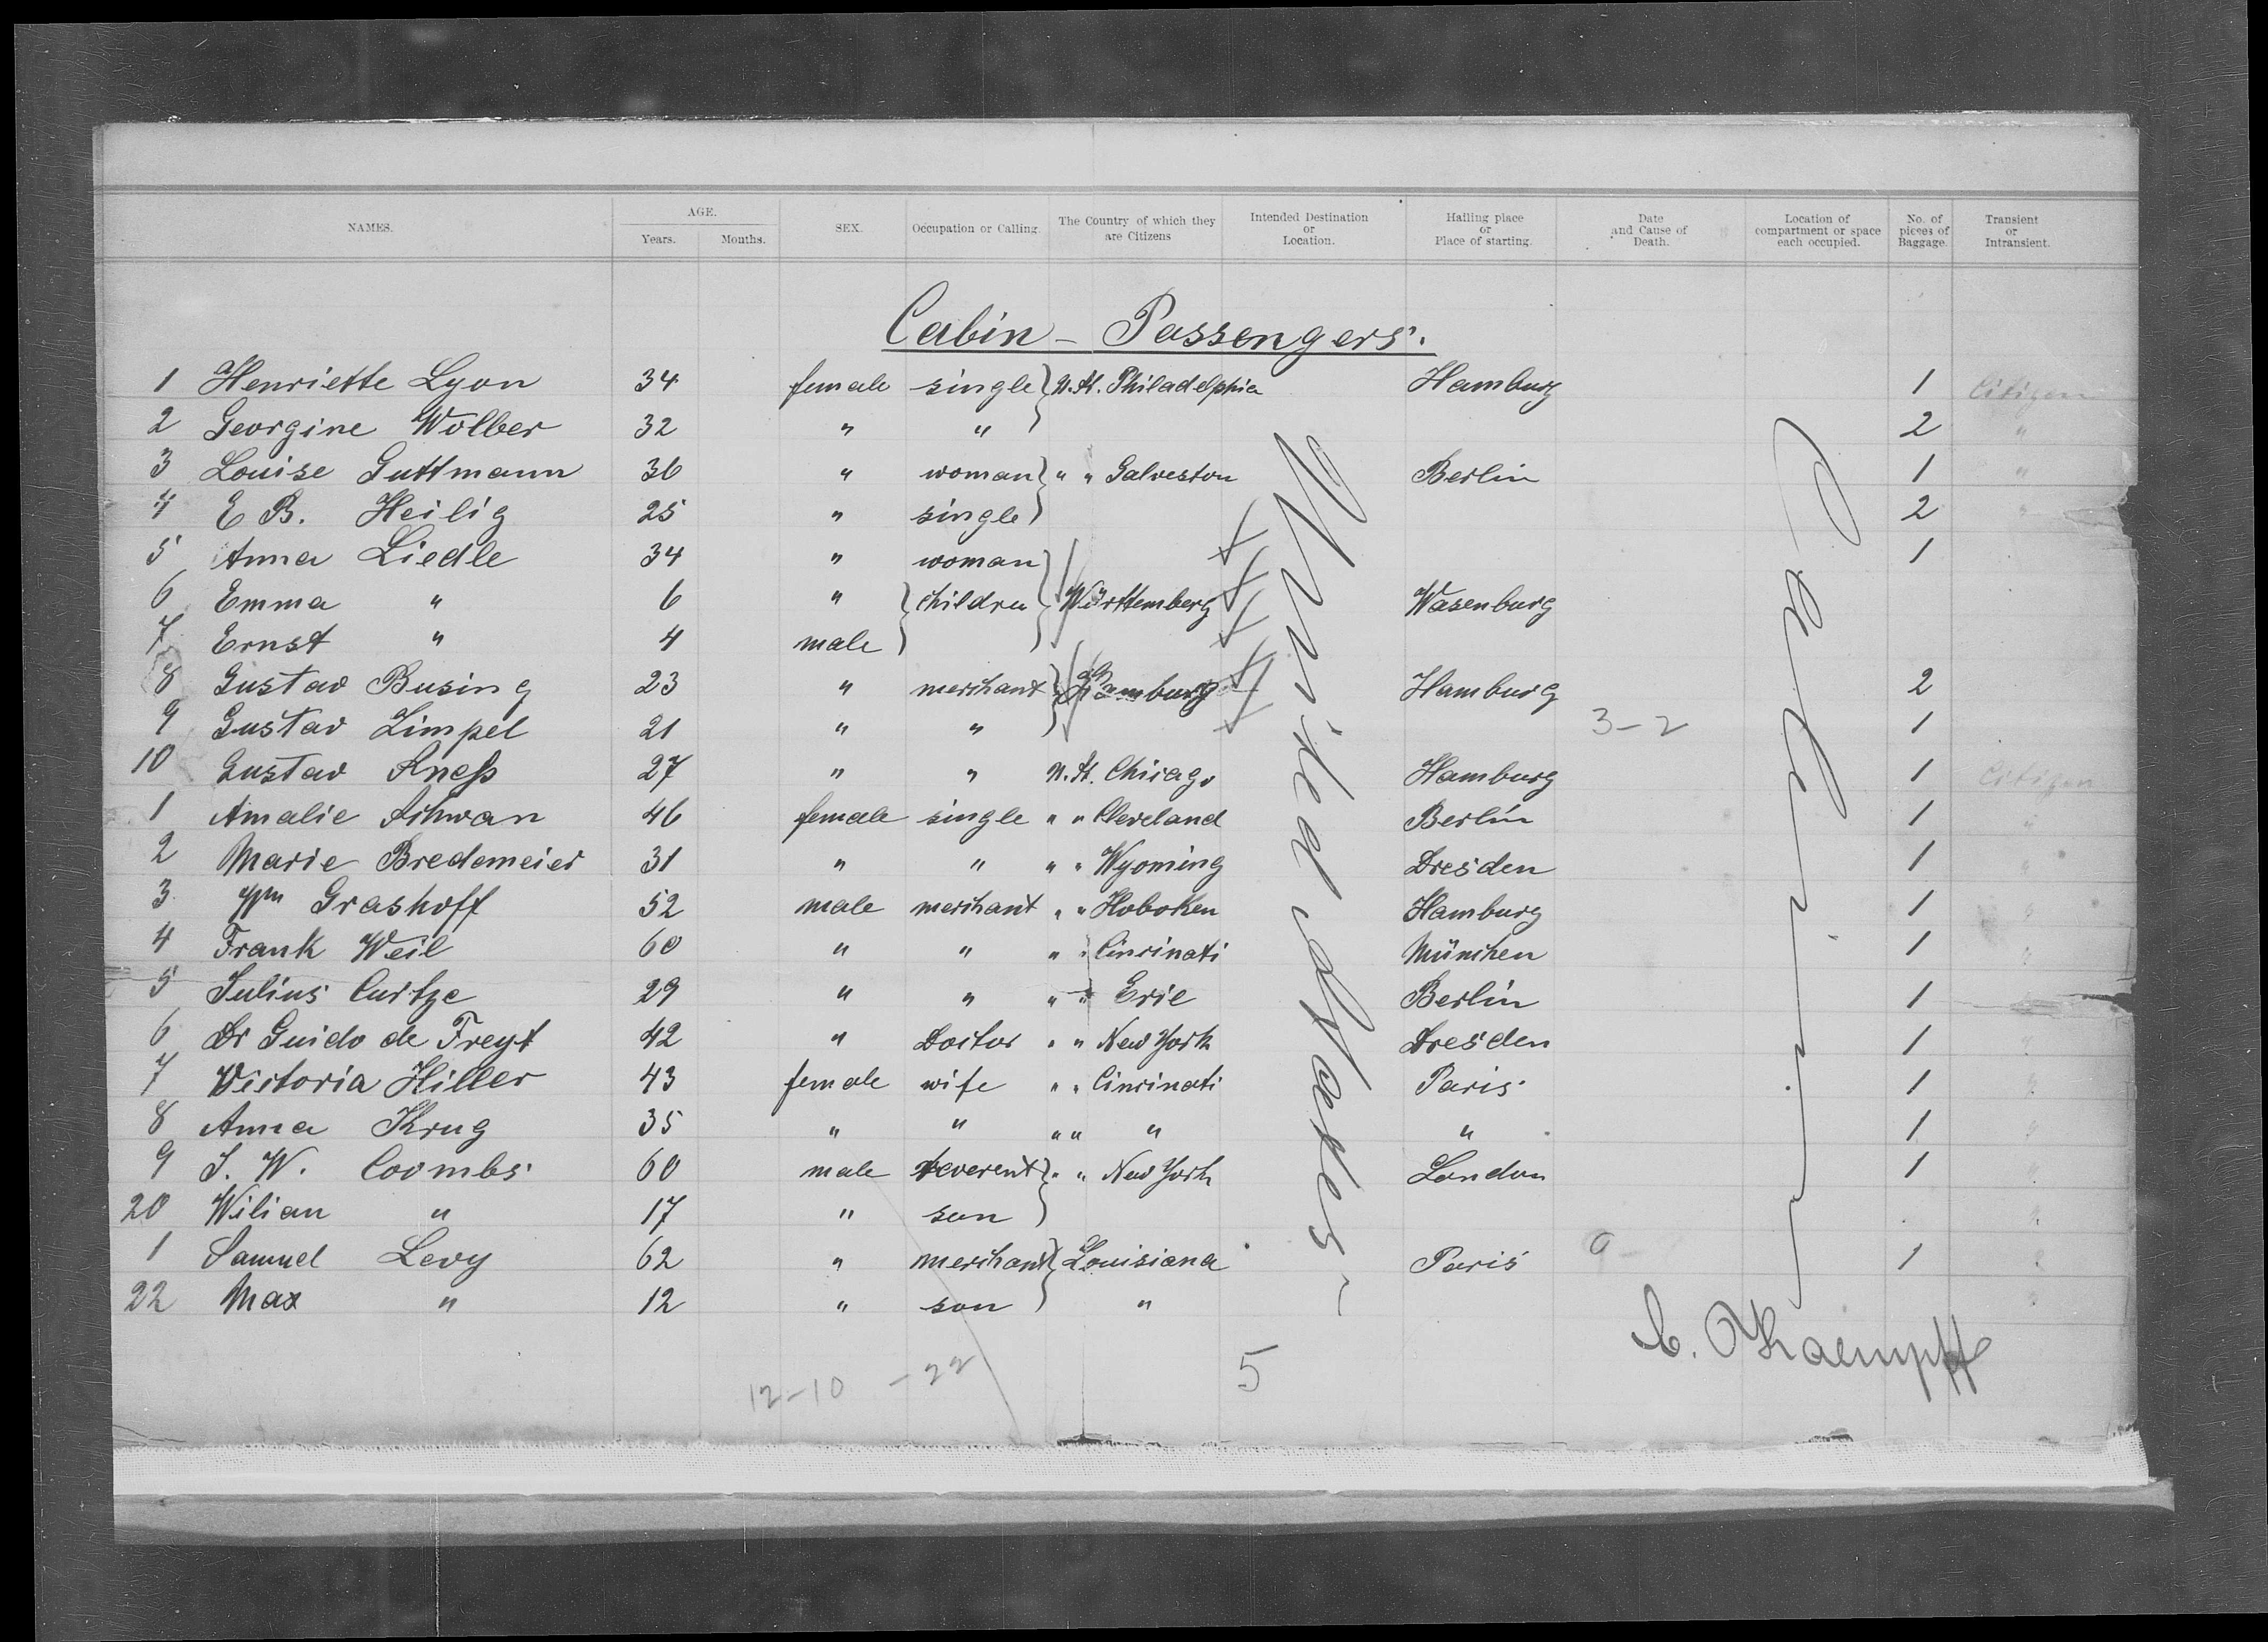 NAMES. AGE. SEX. Occupation or Calling. The Country of which they are Citizens Intended Destination or Location. Hailing place or Place of starting. Date and Cause of Death. Location of compartment or space each occupied. No. of pieces of Baggage. Transient or Intransient.
Years. Months.
Cabin - Passengers.
1 Henriette Lyon 34 female single U. St. Philadelphia Hamburg 1 Citizen
2 Georgine Wolber 32 " " 2 "
3 Louise Guttmann 36 " woman " " Galveston Berlin 1 "
4 E B. Heilig 25 " single 2 "
5 Anna Liedle 34 " woman 1
6 Emma " 6 " children Württemberg Wasenburg
7 Ernst " 4 male
8 Gustav Busing 23 " merchant Hamburg Hamburg 2
9 Gustav Limpel 21 " " 3-2 1
10 Gustav Kneß 27 " " U. St. Chicago Hamburg 1 Citizen
1 Amalie Schwan 46 female single " " Cleveland Berlin 1 "
2 Marie Bredemeier 31 " " " " Wyoming Dresden 1 "
3 Wm Grashoff 52 male merchant " " Hoboken Hamburg 1 "
4 Frank Weil 60 " " " " Cincinati München 1 "
5 Julius Curtze 29 " " " " Erie Berlin 1
6 Dr Guido de Freyt 42 " Doctor " " New York Dresden 1 "
7 Victoria Hiller 43 female wife " " Cincinati Paris 1 "
8 Anna Krug 35 " " " " " " 1 "
9 J. W. Coombs 60 male reverent " " New York London 1 "
20 Wilian " 17 " son "
1 Samuel Levy 62 " merchant Louisiana Paris 9 1 "
22 Max " 12 " son " "
United States
Cabin
C. Kaempff
12-10 -22 5